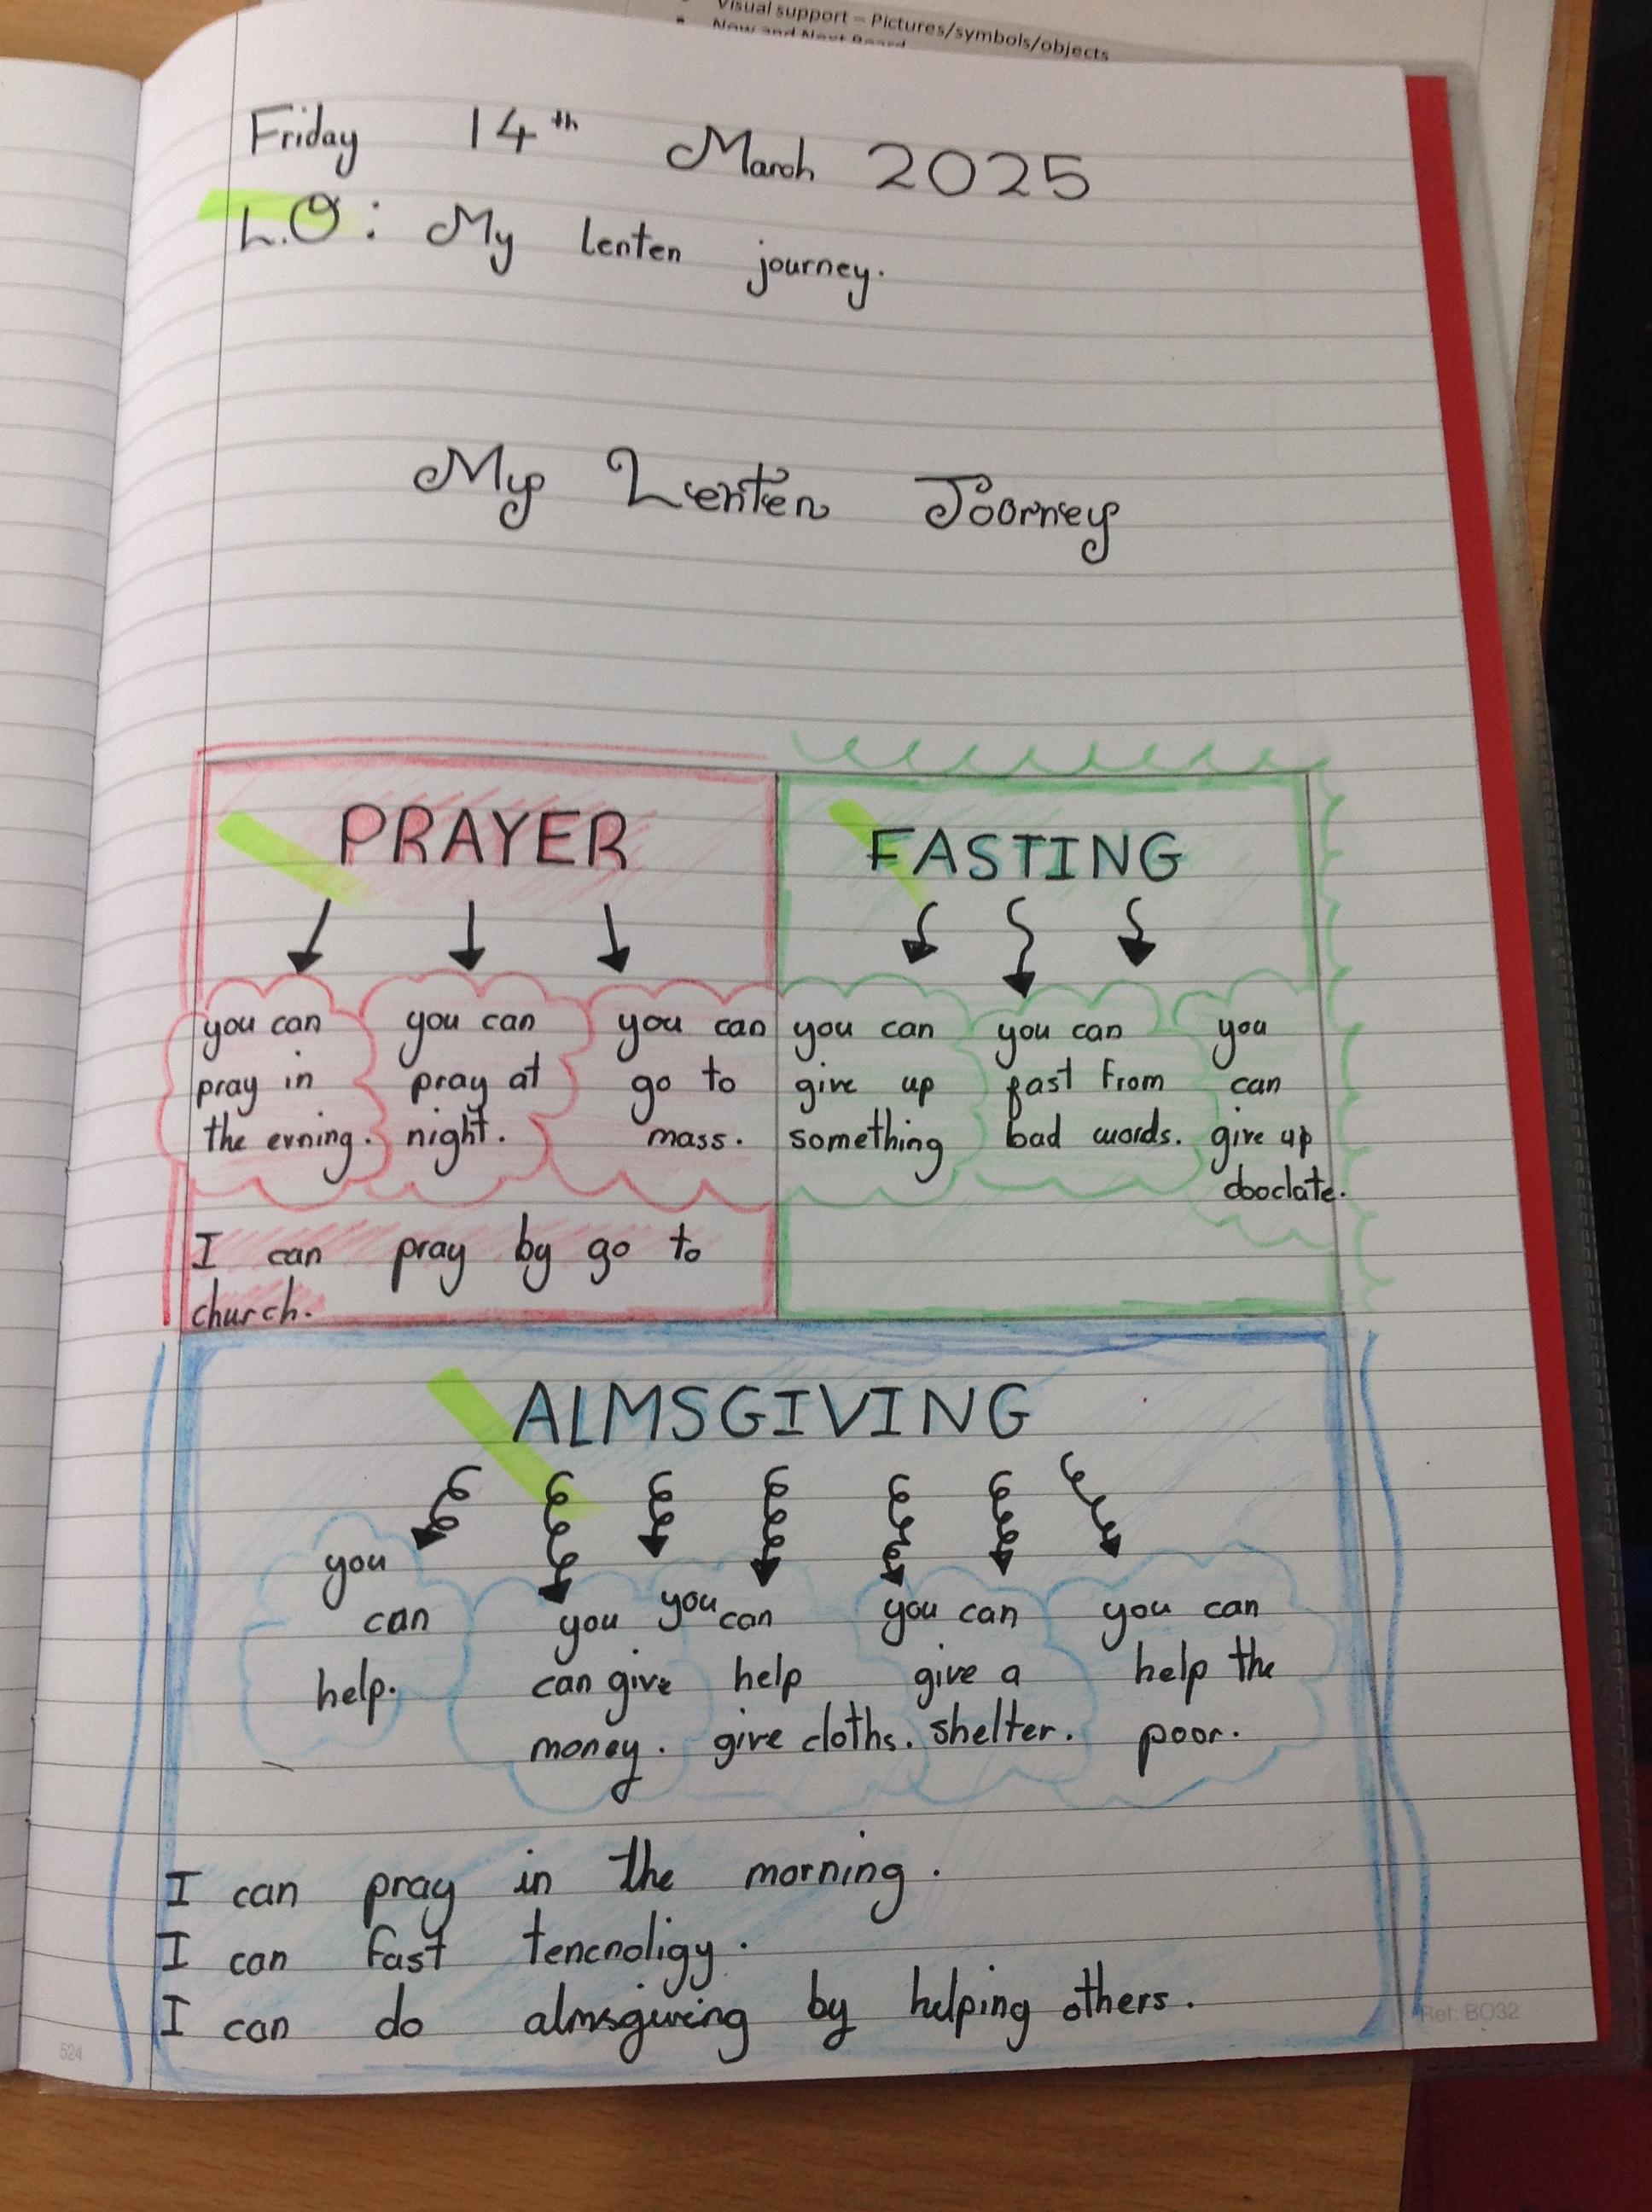 Visual support – Pictures/symbols/objects
Now and Next Board
Friday 14th March 2025
L.O: My lenten journey.
My Lenten Joorney
PRAYER
you can
pray in
the evning.
you can
pray at
night.
you can
go to
mass.
I can pray by go to
church.
FASTING
you can
give up
something
you can
fast from
bad words.
you
can
give up
dooclate.
ALMSGIVING
you
can
help.
you
can give
money.
you can
help
give cloths.
you can
give a
shelter.
you can
help the
poor.
I can pray in the morning.
I can fast tencnoligy.
I can do almsgiveing by helping others.
524
Ref: BO32